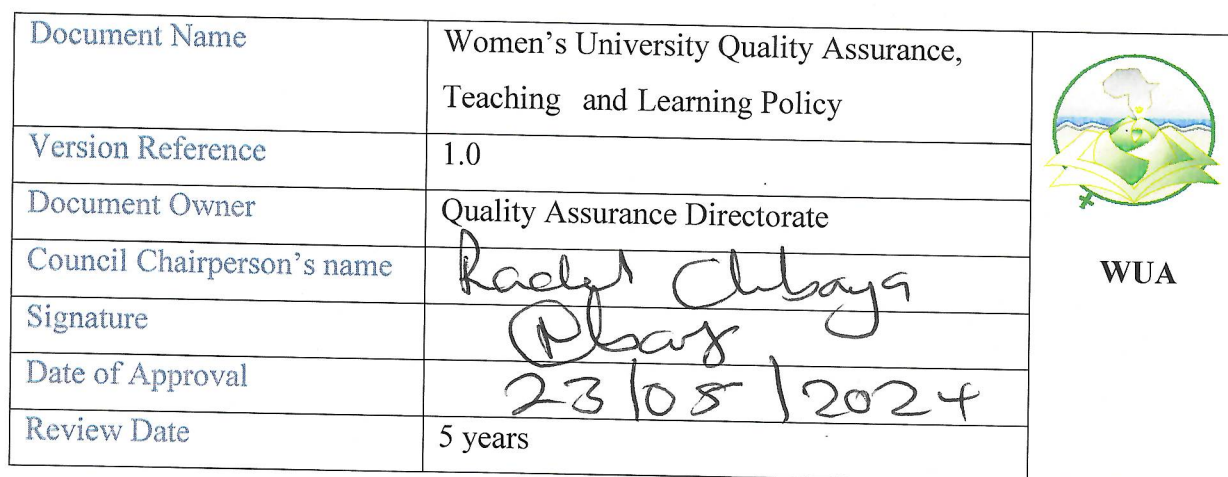 Document Name
Women's University Quality Assurance,
Teaching and Learning Policy
Version Reference
1.0
Document Owner
Quality Assurance Directorate
Council Chairperson's name
Chibaya
Signature
Date of Approval
23/08/2024
Review Date
5 years
WUA